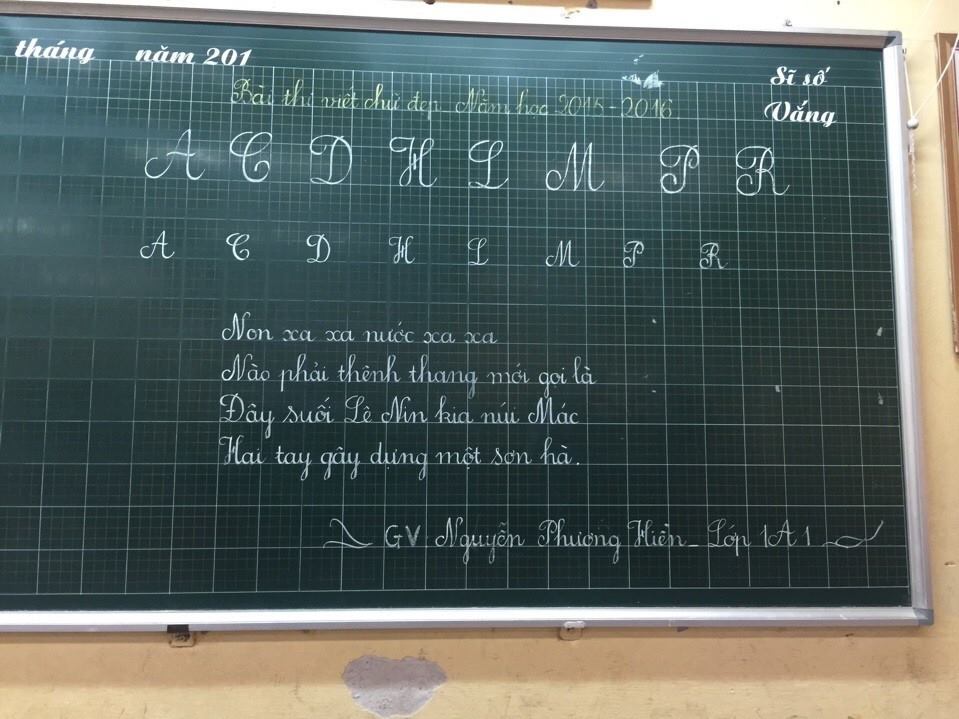 tháng năm 201
Sĩ số
Bài thi viết chữ đẹp Năm học 2015-2016.
Vắng
A C D H L M P R
A C D H L M P R
Non xa xa nước xa xa
Nào phải thênh thang mới gọi là
Đây suối Lê Nin kia núi Mác
Hai tay gây dựng một sơn hà.
GV Nguyễn Phương Hiền_ Lớp 1A1